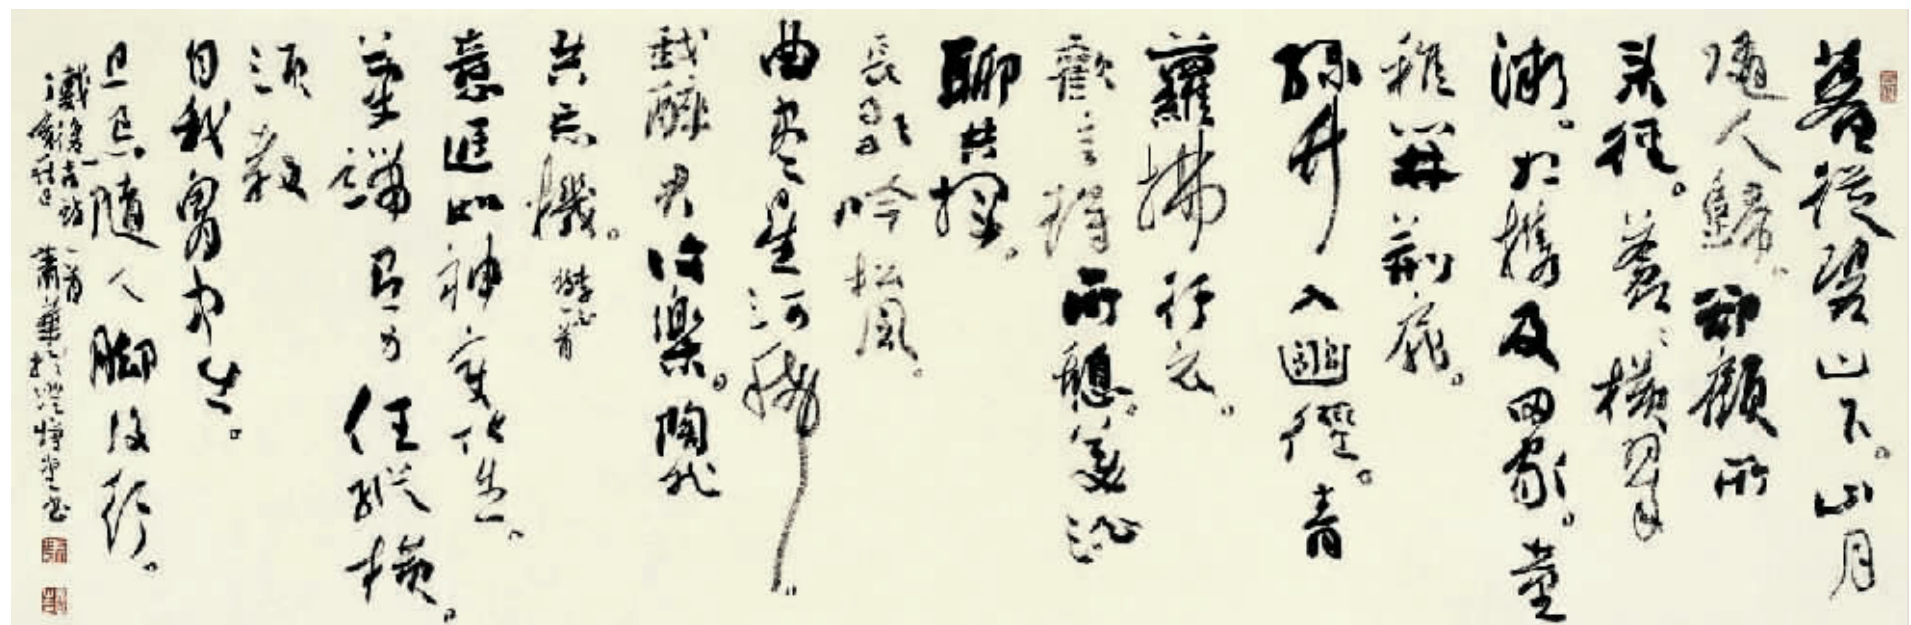 暮從碧山下。山月
隨人歸。卻顧所
来徑。蒼蒼橫翠
微。相攜及田家。童
稚開荊扉。
綠竹入幽徑。青
蘿拂行衣。
歡言得所憩。美酒
聊共揮。
長歌吟松風。
曲盡星河稀。
我醉君復樂。陶然
共忘機。
意匠如神變化生。
筆端有力任縱橫。
須教
自我胸中出。
且忌隨人腳後行。
戴復古詩一首
蕭華於澄懷堂書